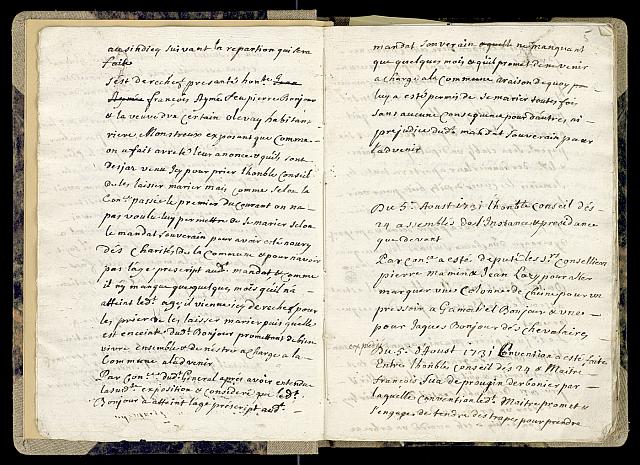 au sindicq suivant la repartion qui sera
faite
Sest derechef presantés honble
françois Aymé feu pierre Bonjour
& la veuve dun certain Clevay habitant
riere Monstreux exposant que Comme
on a fait arreté leur anonce & quils sont
desjaz venu Icy pour prier lhonble Conseil
de les laisser marier mais comme selon la
passée le premier du Courant on na
pas voulu luy permettre de se marier selon
le mandat souverain pour avoir esté noury
dés Charités de la Commune & pour navoir
pas lage prescript aud. mandat & comme
il ny manque que quelques mois quil na
atteint led. age il vienne icy derechef pour
les prier de les laisser marier puis quelle
est enceinte dud. Bonjour promettant de bien
vivre ensemble & de nestre a charge a la
Commune a ladvenir
Par dud. General aprés avoir entendu
lasusd. exposition & consideré que led.
Bonjour a atteint lage prescript aud.
mandat souverain & quelle ne manquant
que quelques mois & quil promet de ne venir
a charge a la Commune a raison de quoy on
luy a esté permis de se marier toutes fois
sans aucune consequence pour dautres ni
prejudice dud. mandat souverain par ou
ladvenir
5
Du 5e Aoust 1731 lhonble Conseil dés
24 assemblés dés lInstance & presidance
que devant
Par a esté deputé les Srs Conseillers
pierre Mamin & Jean Laty pour aler
marquer une Colonne de Chene pour un
pressoir a Gamaliel Bonjour & une
pour Jaques Bonjour dés Chevalaire,
Du 5e dAoust 1731 Convention a esté faite
Entre lhonble Conseil dés 24 & Maitre
François Sua de proupin derbonier par
laquelle Convention led. Maitre promet &
sengage de tendre des trapes pour prendre